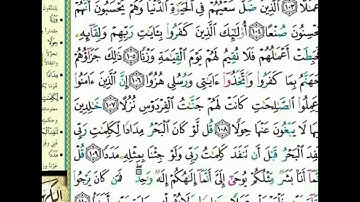 عَمَلًا ١٠٣ ٱلَّذِينَ ضَلَّ سَعْيُهُمْ فِي ٱلْحَيَوٰةِ ٱلدُّنْيَا وَهُمْ يَحْسَبُونَ أَنَّهُمْ
يُحْسِنُونَ صُنْعًا ١٠٤ أُو۟لَٰٓئِكَ ٱلَّذِينَ كَفَرُوا۟ بِـَٔايَٰتِ رَبِّهِمْ وَلِقَآئِهِۦ
فَحَبِطَتْ أَعْمَٰلُهُمْ فَلَا نُقِيمُ لَهُمْ يَوْمَ ٱلْقِيَٰمَةِ وَزْنًا ١٠٥ ذَٰلِكَ جَزَآؤُهُمْ
جَهَنَّمُ بِمَا كَفَرُوا۟ وَٱتَّخَذُوٓا۟ ءَايَٰتِي وَرُسُلِي هُزُوًا ١٠٦ إِنَّ ٱلَّذِينَ ءَامَنُوا۟
عَمِلُوا۟ ٱلصَّٰلِحَٰتِ كَانَتْ لَهُمْ جَنَّٰتُ ٱلْفِرْدَوْسِ نُزُلًا ١٠٧ خَٰلِدِينَ
يهَا لَا يَبْغُونَ عَنْهَا حِوَلًا ١٠٨ قُل لَّوْ كَانَ ٱلْبَحْرُ مِدَادًا لِّكَلِمَٰتِ رَبِّي
نَفِدَ ٱلْبَحْرُ قَبْلَ أَن تَنفَدَ كَلِمَٰتُ رَبِّي وَلَوْ جِئْنَا بِمِثْلِهِۦ مَدَدًا ١٠٩
إِنَّمَآ أَنَا۠ بَشَرٌ مِّثْلُكُمْ يُوحَىٰٓ إِلَيَّ أَنَّمَآ إِلَٰهُكُمْ إِلَٰهٌ وَٰحِدٌ فَمَن كَانَ يَرْجُوا۟